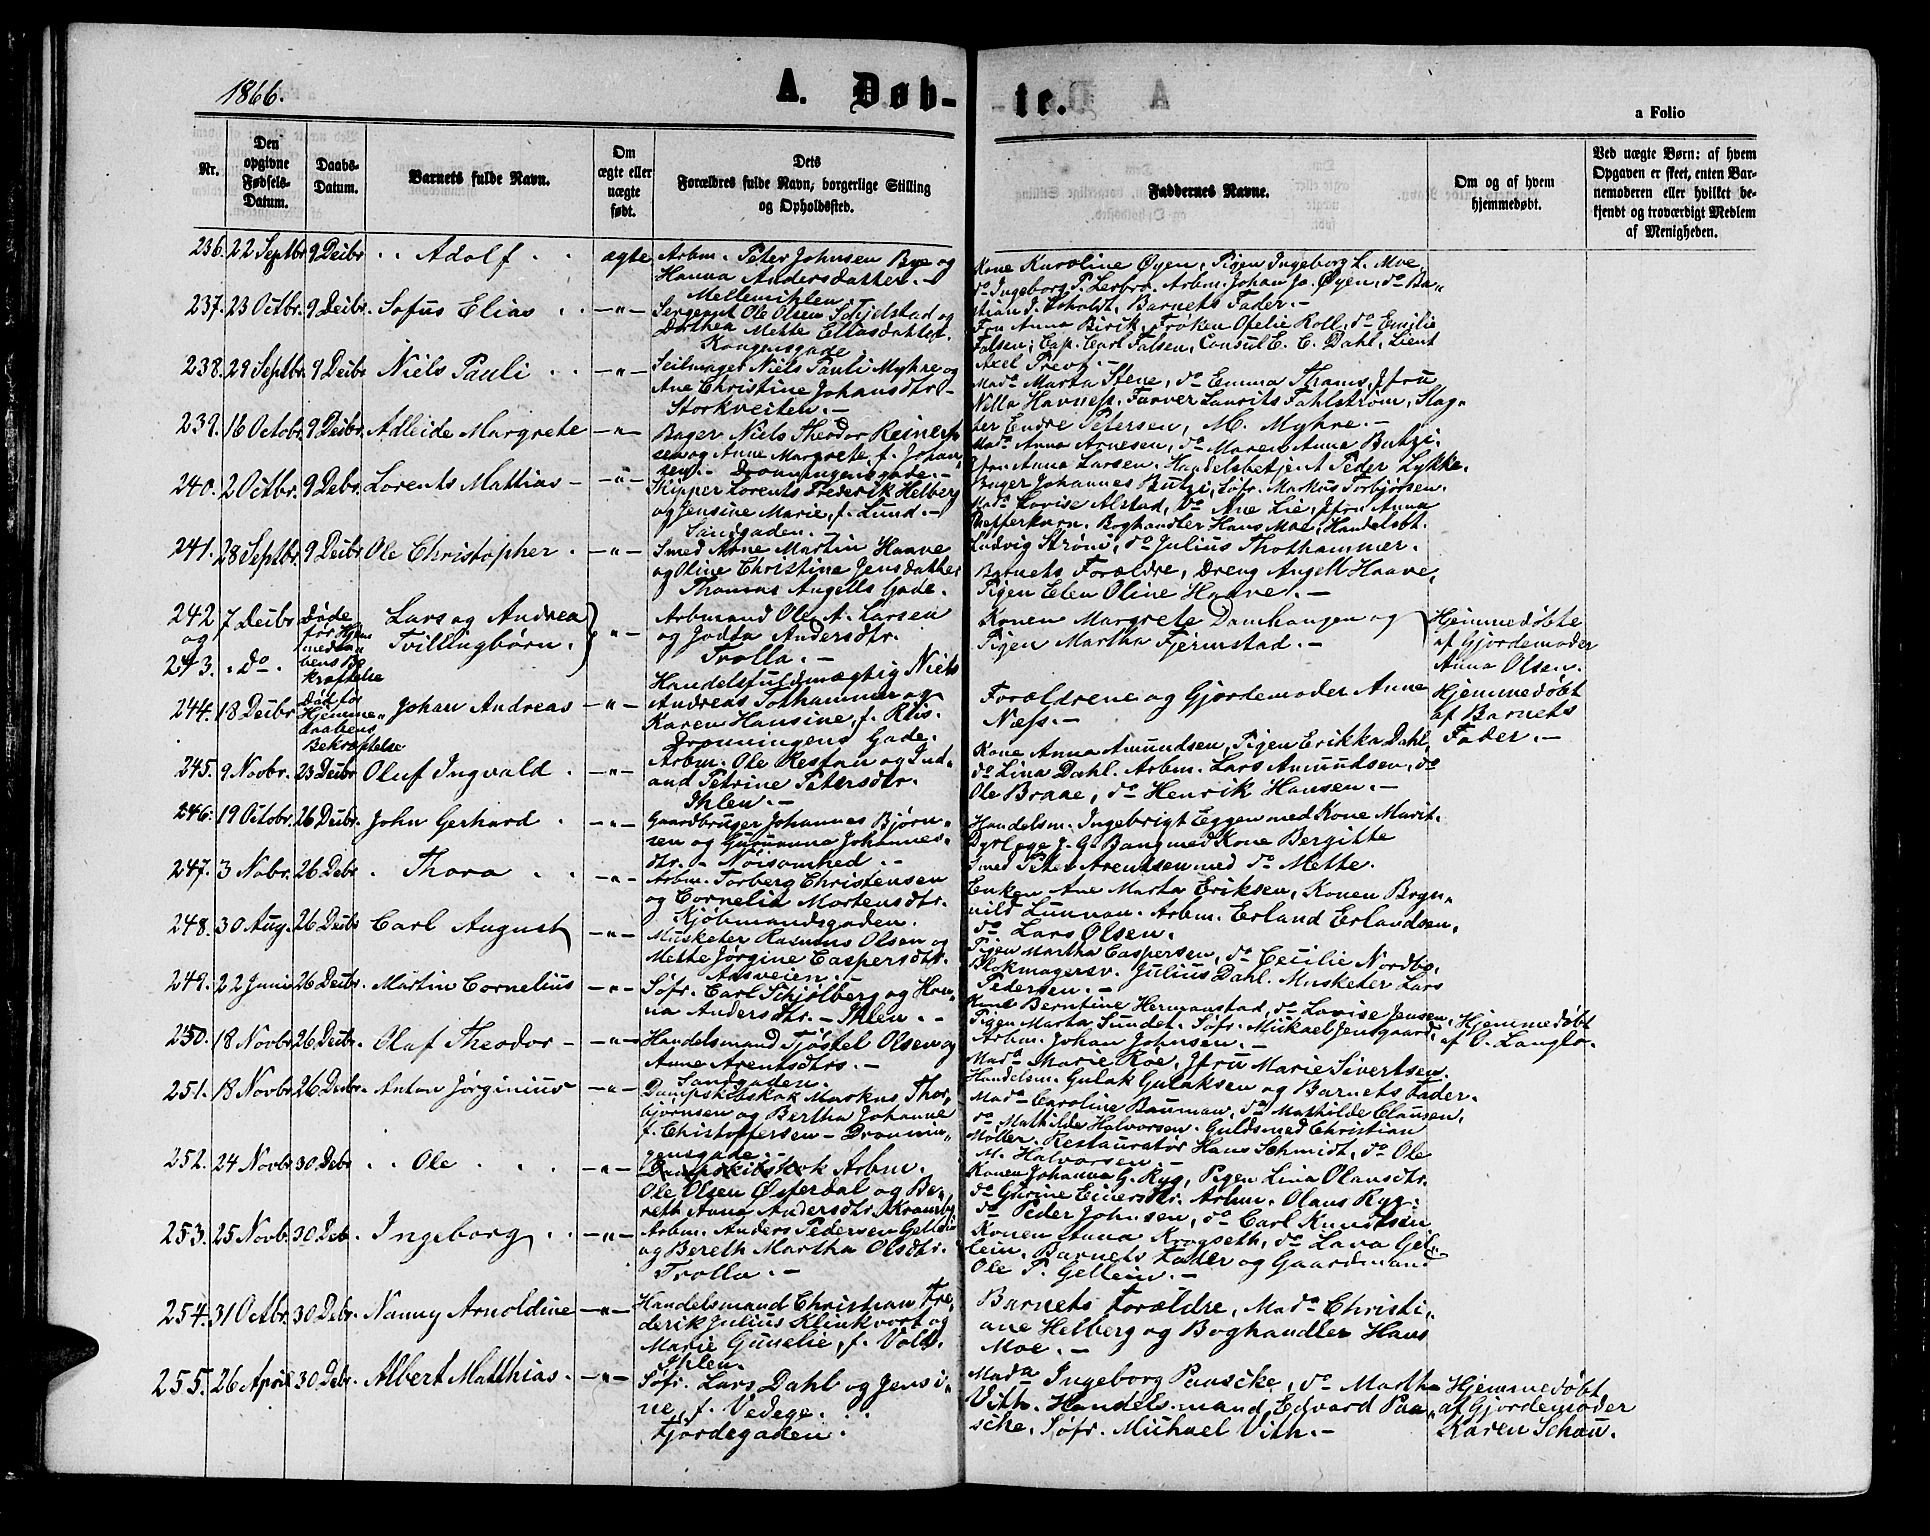 1866.
A. Døb-
te.
a Folio
Nr.
Den opgivne Fødsels-Datum.
Daabs-Datum.
Barnets fulde Navn.
Om ægte eller uægte født.
Dets Forældres fulde Navn, borgerlige Stilling og Opholdssted.
Faddernes Navne.
Om og af hvem hjemmedøbt.
Ved uægte Børn: af hvem Opgaven er skeet, enten Barnemoderen eller hvilket bekjendt og troværdigt Medlem af Menigheden.
236. 22 Septbr 9 Decbr Adolf ægte Arbm. Peter Johnsen Bye og
Hanna Andersdatter. -
Mellemihlen
Kone Karoline Øyen, Pigen Ingeborg L. Moe,
do Ingeborg P. Lerbro. Arbm. Johan Jo. Øyen, do Ba-
stian J. Esholdt, Barnets Fader. -
237. 23 Octbr. 9 Decbr. Sofus Elias -"- Sergeant Ole Olsen Schjelstad og
Dorthea Mette Eliasdatter.
Kongensgade
Fru Anna Birik, Frøken Ofelie Roll, do Emilie
Falsen; Cap. Carl Falsen, Consul E. C. Dahl, Lieut
Axel Prevz.
238. 29 Septbr. 9 Decbr Niels Pauli -"- Seilmager Niels Pauli Myhre og
Ane Christine Johansdtr -
Storkveiten. -
Mada Marta Stene, do Emma Thams, Jfru
Nilla Havness, Farver Laurits Fahlstrøm, Slag-
ter Endre Petersen, M. Myhre. -
239. 16 Octobr. 9 Decbr. Adleide Margrete -"- Bager Niels Theodor Reinert-
sen og Anne Margrete, f. Johan-
sen. - Dronningensgade. -
Mada Anna Arnesen, do Maren Anna Butzi.
Jfru Anna Larsen. Handelsbetjent Peder Lykke.
Bager Johannes Butzi, Søfr. Markus Torbjørsen.
240. 2 Octbr. 9 Debr. Lorents Mattias - -"- Skipper Lorents Frederik Helberg
og Jensine Marie, f. Lund. -
Sandgaden. -
Mada Lovise Alstad, do Ane Lie, Jfru Anna
Pefferkorn. Boghandler Hans Moe, Handelsbt.
Ludvig Strøm, do Julius Thothammer.
241. 28 Septbr 9 Decbr Ole Christopher -"- Smed Arne Martin Haave
og Oline Christine Jensdatter
Thomas Angells Gade.
Barnets Forældre, Dreng Angell Haave,
Pigen Elen Oline Haave. -
242 7 Decbr Døde Lars og Andrea
og før Hjem-
243. do meda- Tvillingbørn. -"-
bens Be-
kræftelse
Arbmand Ole A. Larsen
og Jodda Andersdtr.
Trolla. -
Konen Margrete Damhaugen og
Pigen Martha Fjermstad. -
Hjemmedøbte
af Gjordemoder
Anna Olsen.
244. 18 Decbr Død før Johan Andreas -"-
Hjemme-
daabens
Bekræftelse
Handelsfuldmægtig Niels
Andreas Tothammer og
Karen Hansine, f. Riis.
Dronningens Gade.
Forældrene og Gjordemoder Anne
Næss. -
Hjemmedøbt
af Barnets
Fader. -
245. 9 Novbr. 23 Decbr Oluf Ingvald -"- Arbm. Ole Restan og Ind-
and Petrine Petersdtr.
Ihlen. -
Kone Anna Amundsen, Pigen Erikka Dahl,
do Lina Dahl. Arbm. Lars Amundsen, do
Ole Braae, do Henrik Hansen. -
246. 19 Octobr. 26 Decbr. John Gerhard -"- Gaardbruger Johannes Bjørn-
sen og Gurianna Johannes-
dtr. - Nøisomhed. -
Handelsm. Ingebrigt Eggen med Kone Marit.
Dyrlæge J. G. Bang med Kone Bergitte
Smed Peter Arentsen med do Mette.
247. 3 Nobr. 26 Debr. Thora -"- Arbm. Torberg Christensen
og Cornelia Mortensdtr.
Kjøbmandsgaden.
Enken Ane Marta Eriksen, Konen Bryn-
nild Lunnan. Arbm. Erland Erlandsen,
do Lars Olsen.
248. 30 Aug. 26 Decbr Carl August -"- Musketer Rasmus Olsen og
Mette Jørgine Caspersdtr.
Aasveien. -
Pigen Martha Caspersen, do Cecilie Nordbo,
Blokmagersv. Julius Dahl. Musketer Lars
Pedersen. -
249. 22 Juni 26 Decbr. Martin Cornelius -"- Søfr. Carl Schjølberg og Han-
na Andersdtr. - Ihlen. -
Kone Berntine Hermanstad, do Lovise Jensen,
Pigen Marta Sundet. Søfr. Mickael Jensgaard.
Arbm. Johan Johnsen. -
Hjemmedøbt
af O. Langlo.
250. 18 Novbr 26 Decbr. Olaf Theodor - -"- Handelsmand Tjøstel Olsen og
Anne Arentsdtrs. -
Sandgaden.
Mada Marie Roe, Jfru Marie Sivertsen.
Handelsm. Gulak Gulaksen og Barnets Fader.
251. 18 Novbr 26 Decbr. Anton Jørginius -"- Dampskibskok Markus Thor-
bjørnsen og Bertha Johanne
f. Christoffersen - Dronnin-
gensgade. -
Mada Caroline Bauman, do Mathilde Clausen,
do Mathilde Halvorsen. Guldsmed Christian
Møller. Restauratør Hans Schmidt, do Ole
M. Halvorsen. -
252. 24 Novbr. 30 Debr Ole -"- Dampskibskok Arbm.
Ole Olsen Østerdal og Be-
reth Anna Andersdtr. Krambg
Konen Johanna G. Ryg, Pigen Lina Olausdtr.
do Gurine Einersdtr. Arbm. Olaus Ryg.
do Peder Johnsen, do Carl Knudtsen
253. 25 Novb. 30 Deb. Ingeborg -"- Arbm. Anders Pedersen Gellein
og Bereth Martha Olsdtr.
Trolla. -
Konen Anna Kragseth, do Lava Gel-
lein. Barnets Fader og Gaardmand
Ole P. Gellein. -
254. 31 Octbr. 30 Debr. Nanny Arnoldine -"- Handelsmand Christian Fre-
derik Julius Klinkvort og
Marie Gunelie, f. Vold.
Ihlen.
Barnets Forældre, Mada Christi-
ane Helberg og Boghandler Hans
Moe. -
255. 26 April 30 Debr. Albert Matthias. -"- Søfr. Lars Dahl og Jensi-
ne, f. Vedege.
Fjordegaden.
Mada Ingeborg Paascke, do Marth
Vith. Handelsmand Edvard Paa-
scke, Søfr. Michael Vith. -
Hjemmedøbt
af Gjordemoder
Karen Schau.